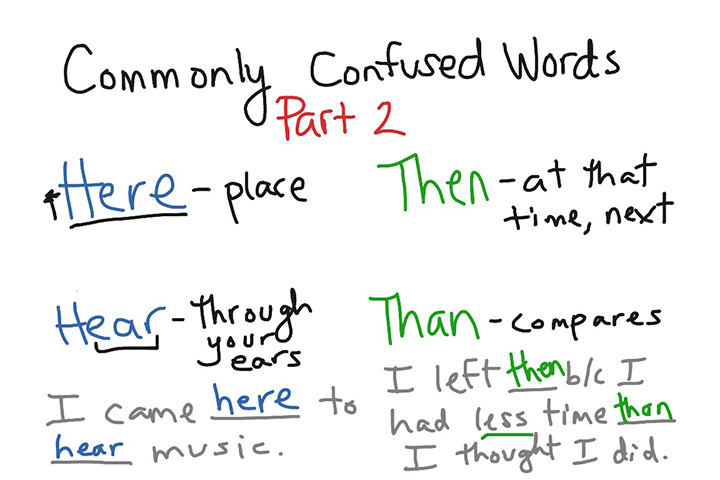 Commonly Confused Words
Part 2
Here - place
Then - at that
time, next
Hear - through
your
ears
Than - compares
I came here to
hear music.
I left then b/c I
had less time than
I thought I did.